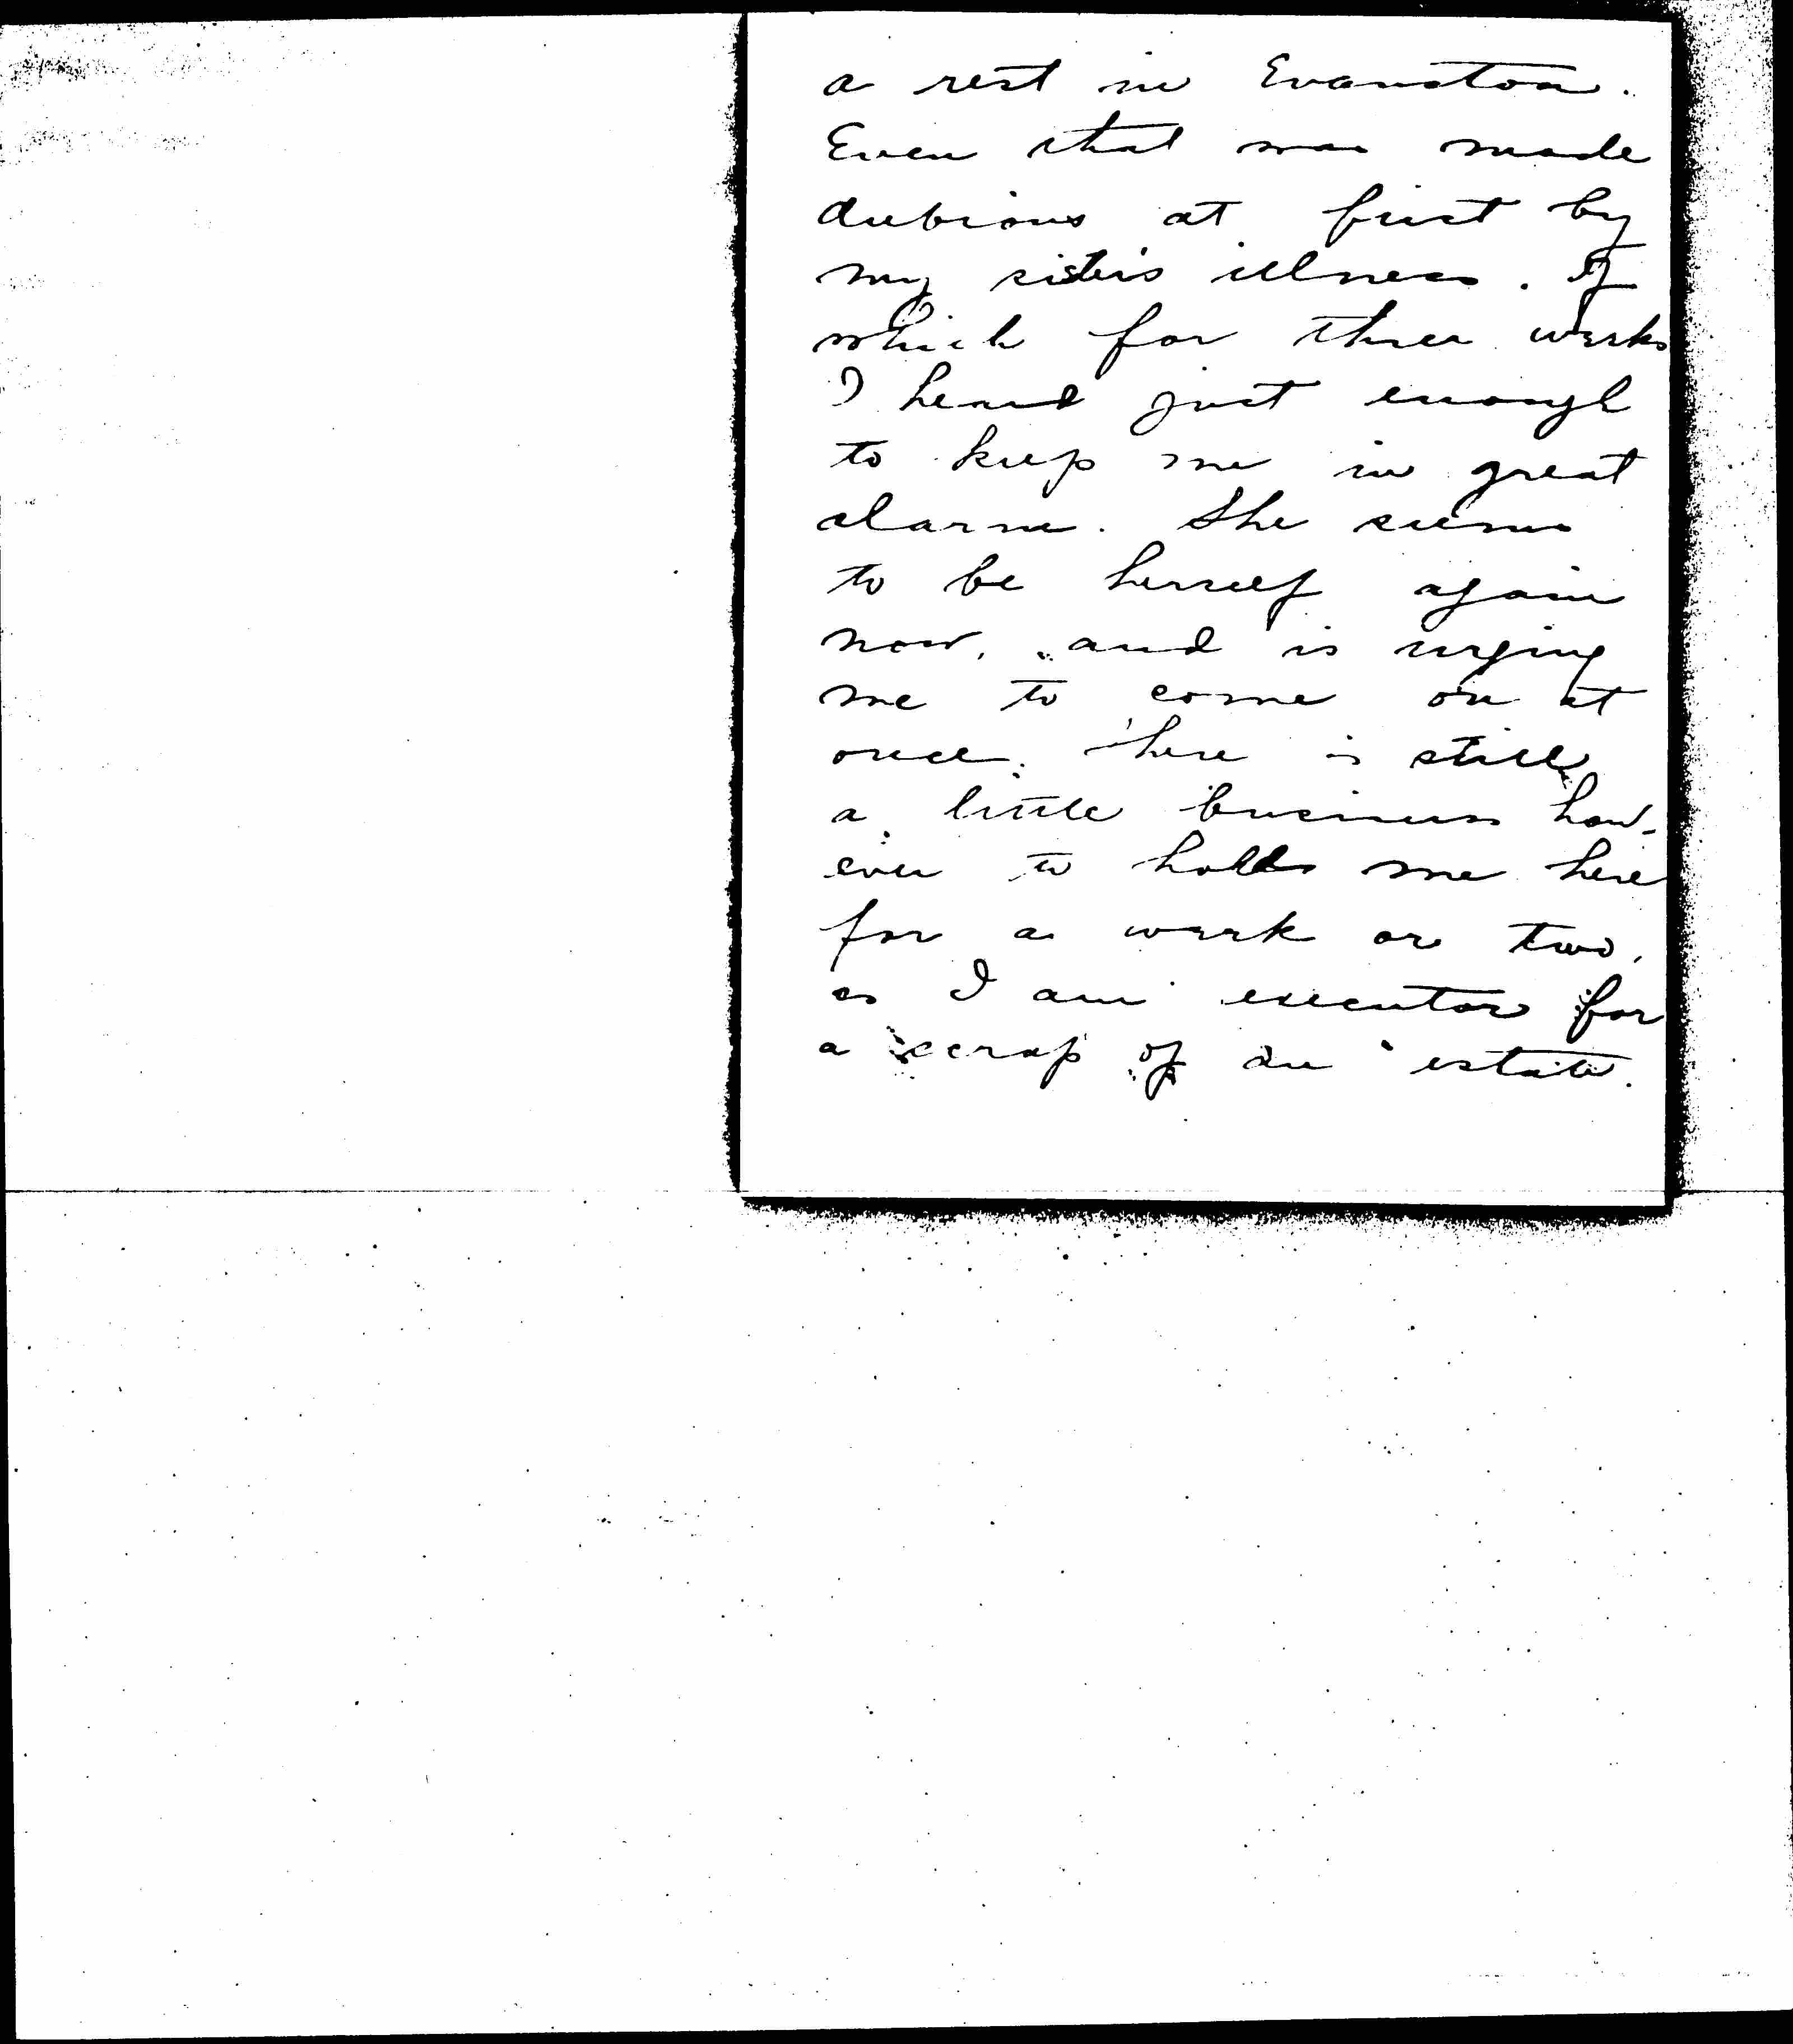 a rest in Evanston.
Even that was made
dubious at first by
my sister's illness. Of
which for three weeks
I heard just enough
to keep me in great
alarm. She seems
to be herself again
now, and is urging
me to come on at
once. There is still
a little business how-
ever to hold me here
for a week or two,
as I am executor for
a scrap of an estate.